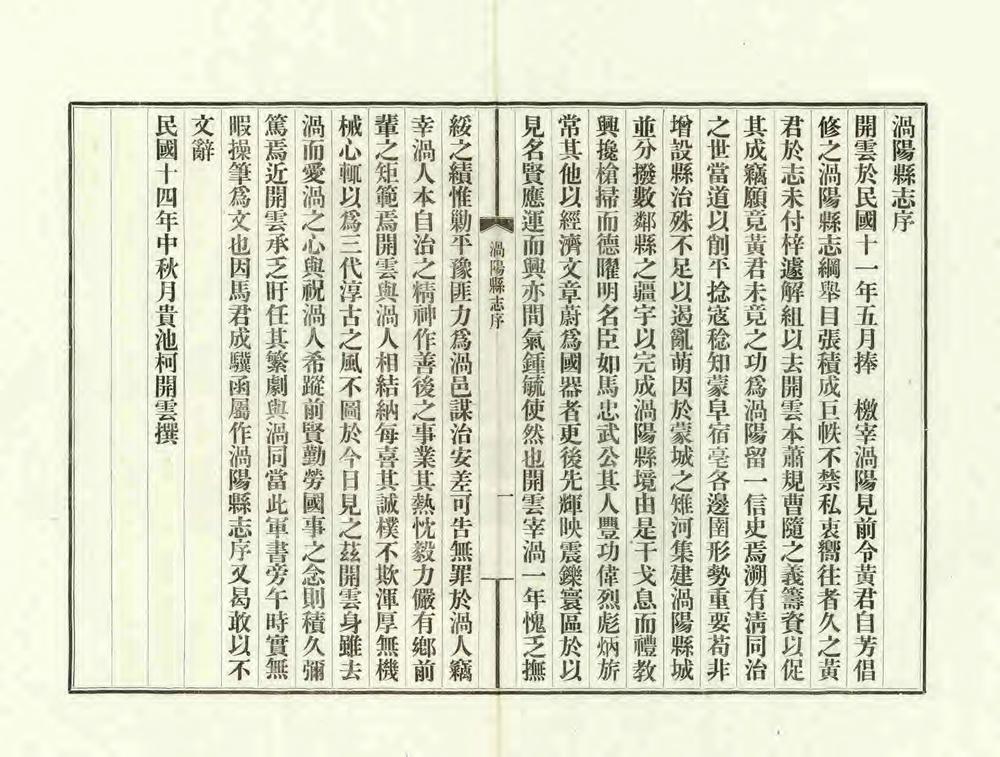 渦陽縣志序
開雲於民國十一年五月捧　檄宰渦陽見前令黃君自芳倡
修之渦陽縣志綱舉目張積成巨帙不禁私衷嚮往者久之黃
君於志未付梓遽解組以去開雲本蕭規曹隨之義籌資以促
其成竊願竟黃君未竟之功爲渦陽留一信史焉溯有淸同治
之世當道以削平捻寇稔知蒙阜宿亳各邊圉形勢重要苟非
增設縣治殊不足以遏亂萌因於蒙城之雉河集建渦陽縣城
並分撥數鄰縣之疆宇以完成渦陽縣境由是干戈息而禮教
興攙槍掃而德曜明名臣如馬忠武公其人豐功偉烈彪炳旂
常其他以經濟文章蔚爲國器者更後先輝映震鑠寰區於以
見名賢應運而興亦間氣鍾毓使然也開雲宰渦一年愧乏撫
渦陽縣志序
一
綏之績惟勦平豫匪力爲渦邑謀治安差可告無罪於渦人竊
幸渦人本自治之精神作善後之事業其熱忱毅力儼有鄉前
輩之矩範焉開雲與渦人相結納每喜其誠樸不欺渾厚無機
械心輒以爲三代淳古之風不圖於今日見之茲開雲身雖去
渦而愛渦之心與祝渦人希蹤前賢勤勞國事之念則積久彌
篤焉近開雲承乏盱任其繁劇與渦同當此軍書旁午時實無
暇操筆爲文也因馬君成驥函屬作渦陽縣志序又曷敢以不
文辭
民國十四年中秋月貴池柯開雲撰